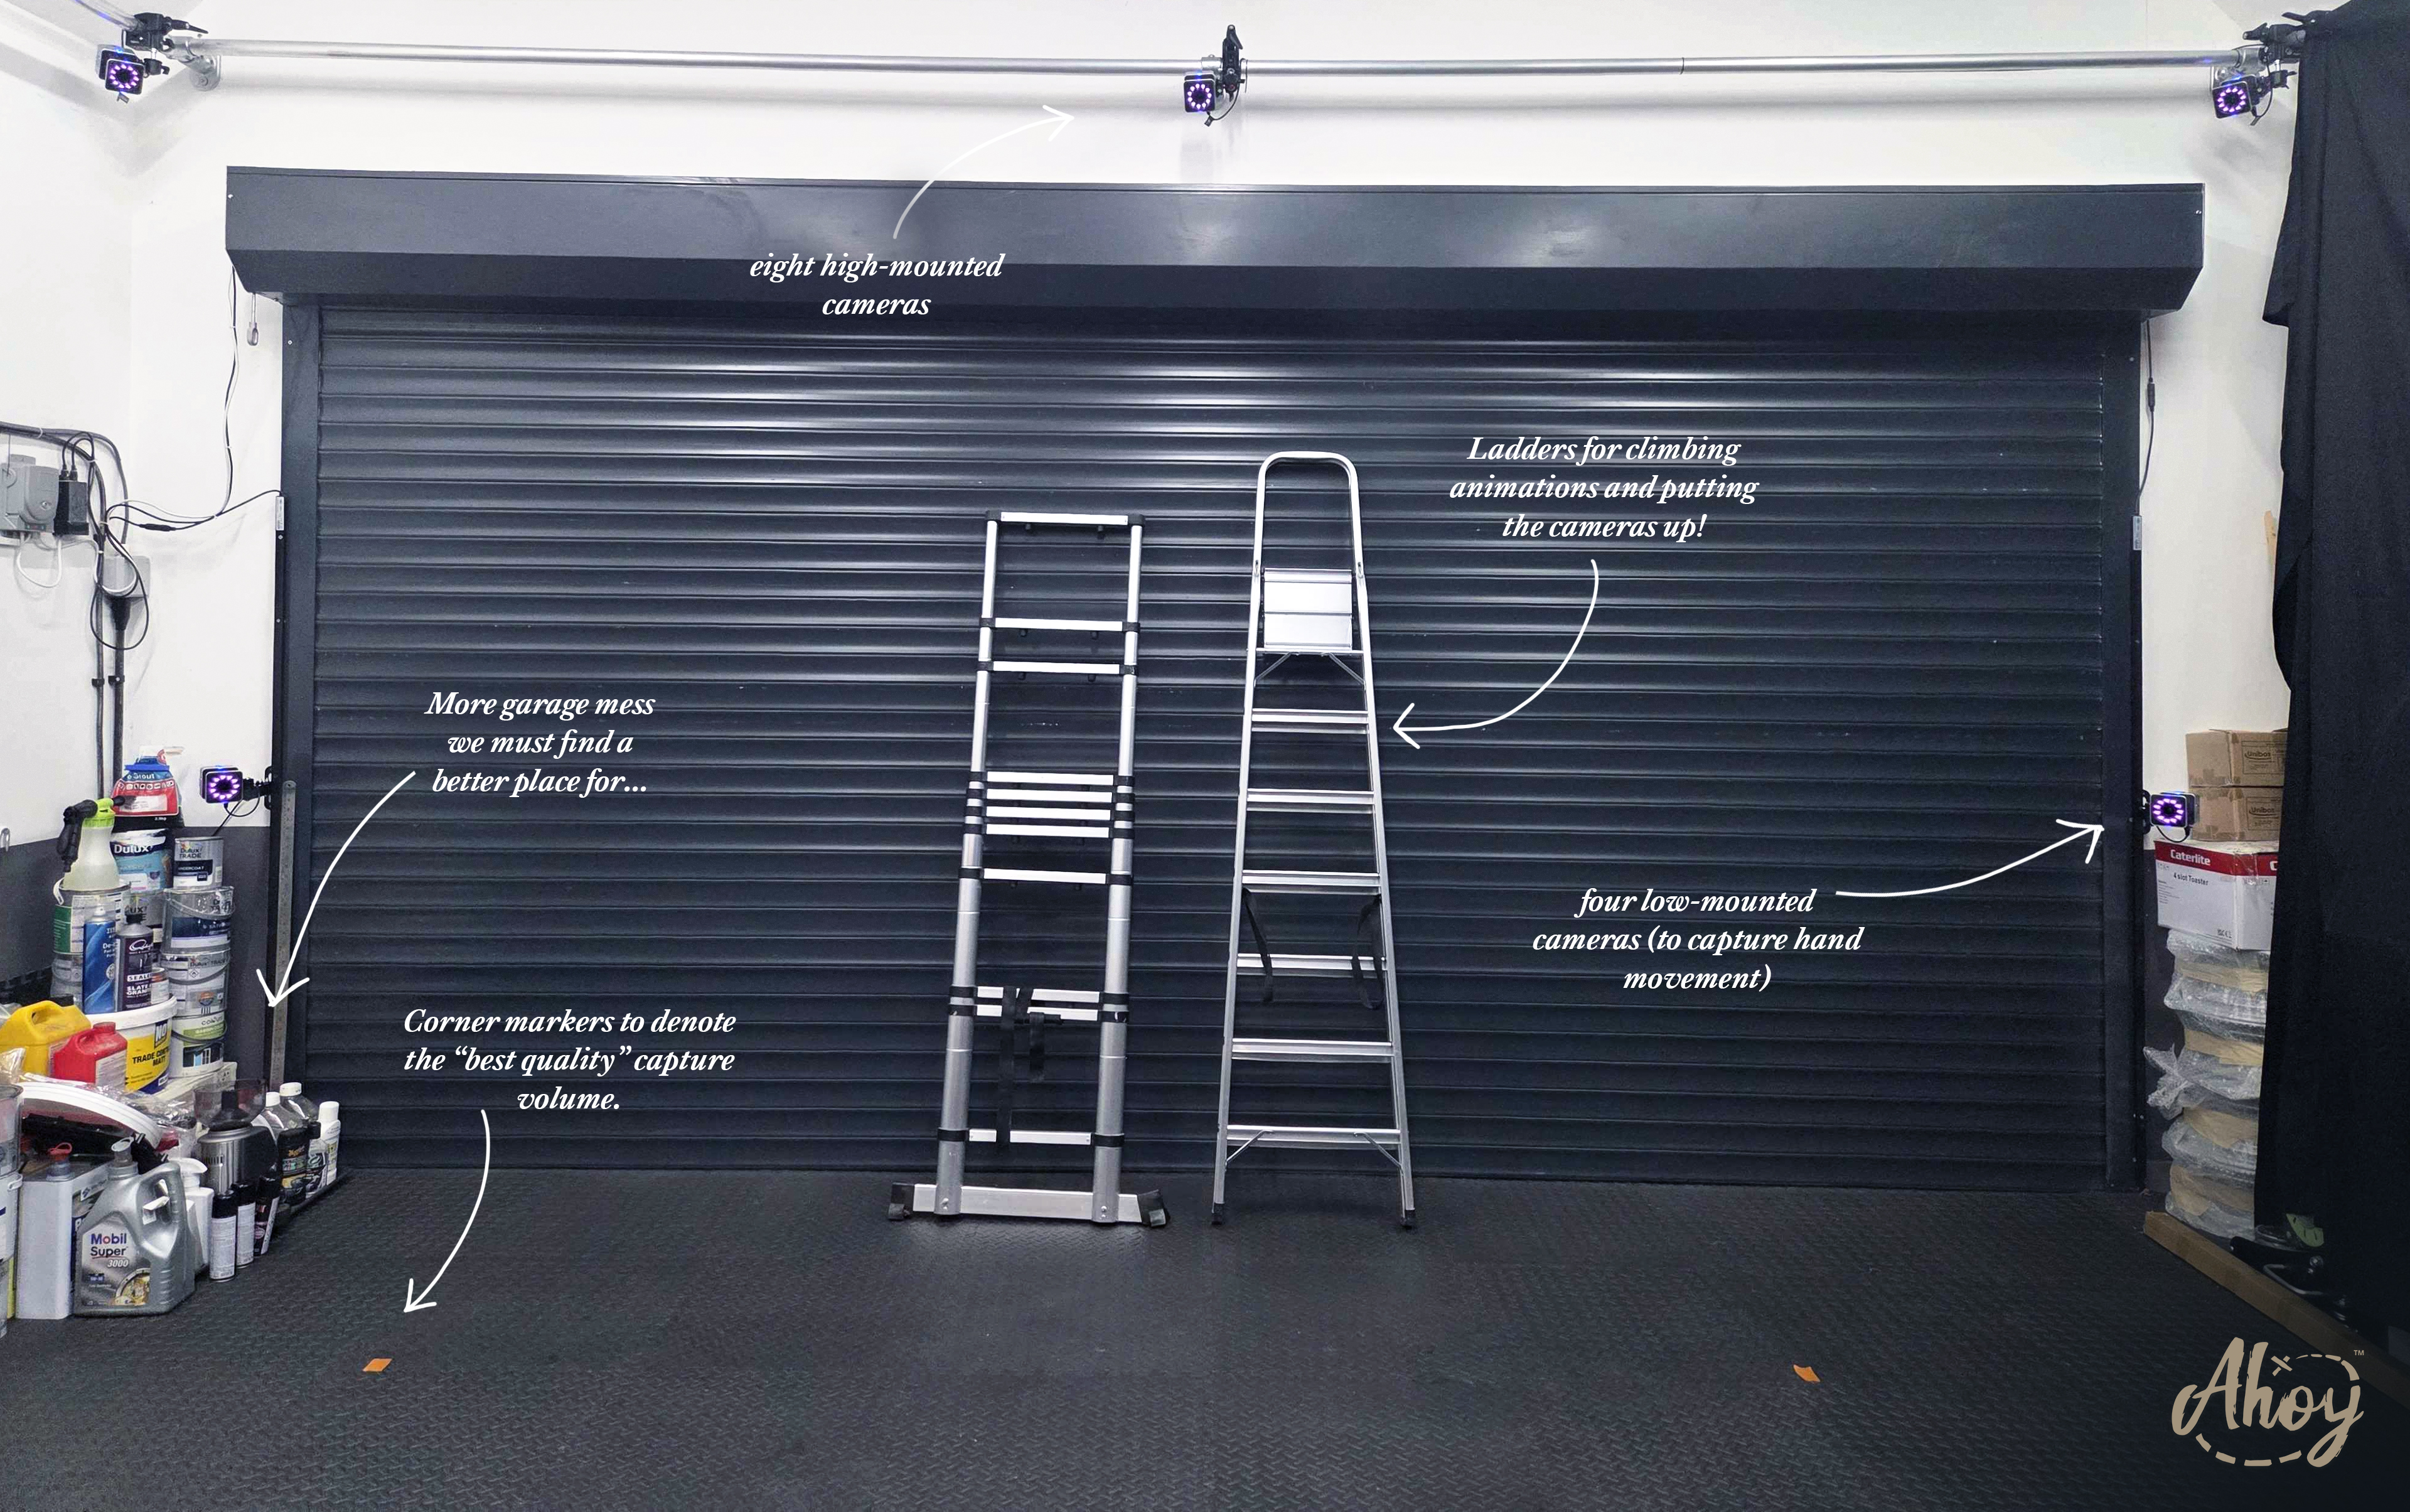 eight high-mounted
cameras
Ladders for climbing
animations and putting
the cameras up!
More garage mess
we must find a
better place for...
Dulux
Dulux
TRADE
Unibox
Unibox
Caterlite
C
4 slot Toaster
four low-mounted
cameras (to capture hand
movement)
Corner markers to denote
the “best quality” capture
volume.
TRADE
MATT
Mobil
Super
3000
Ahoy
TM